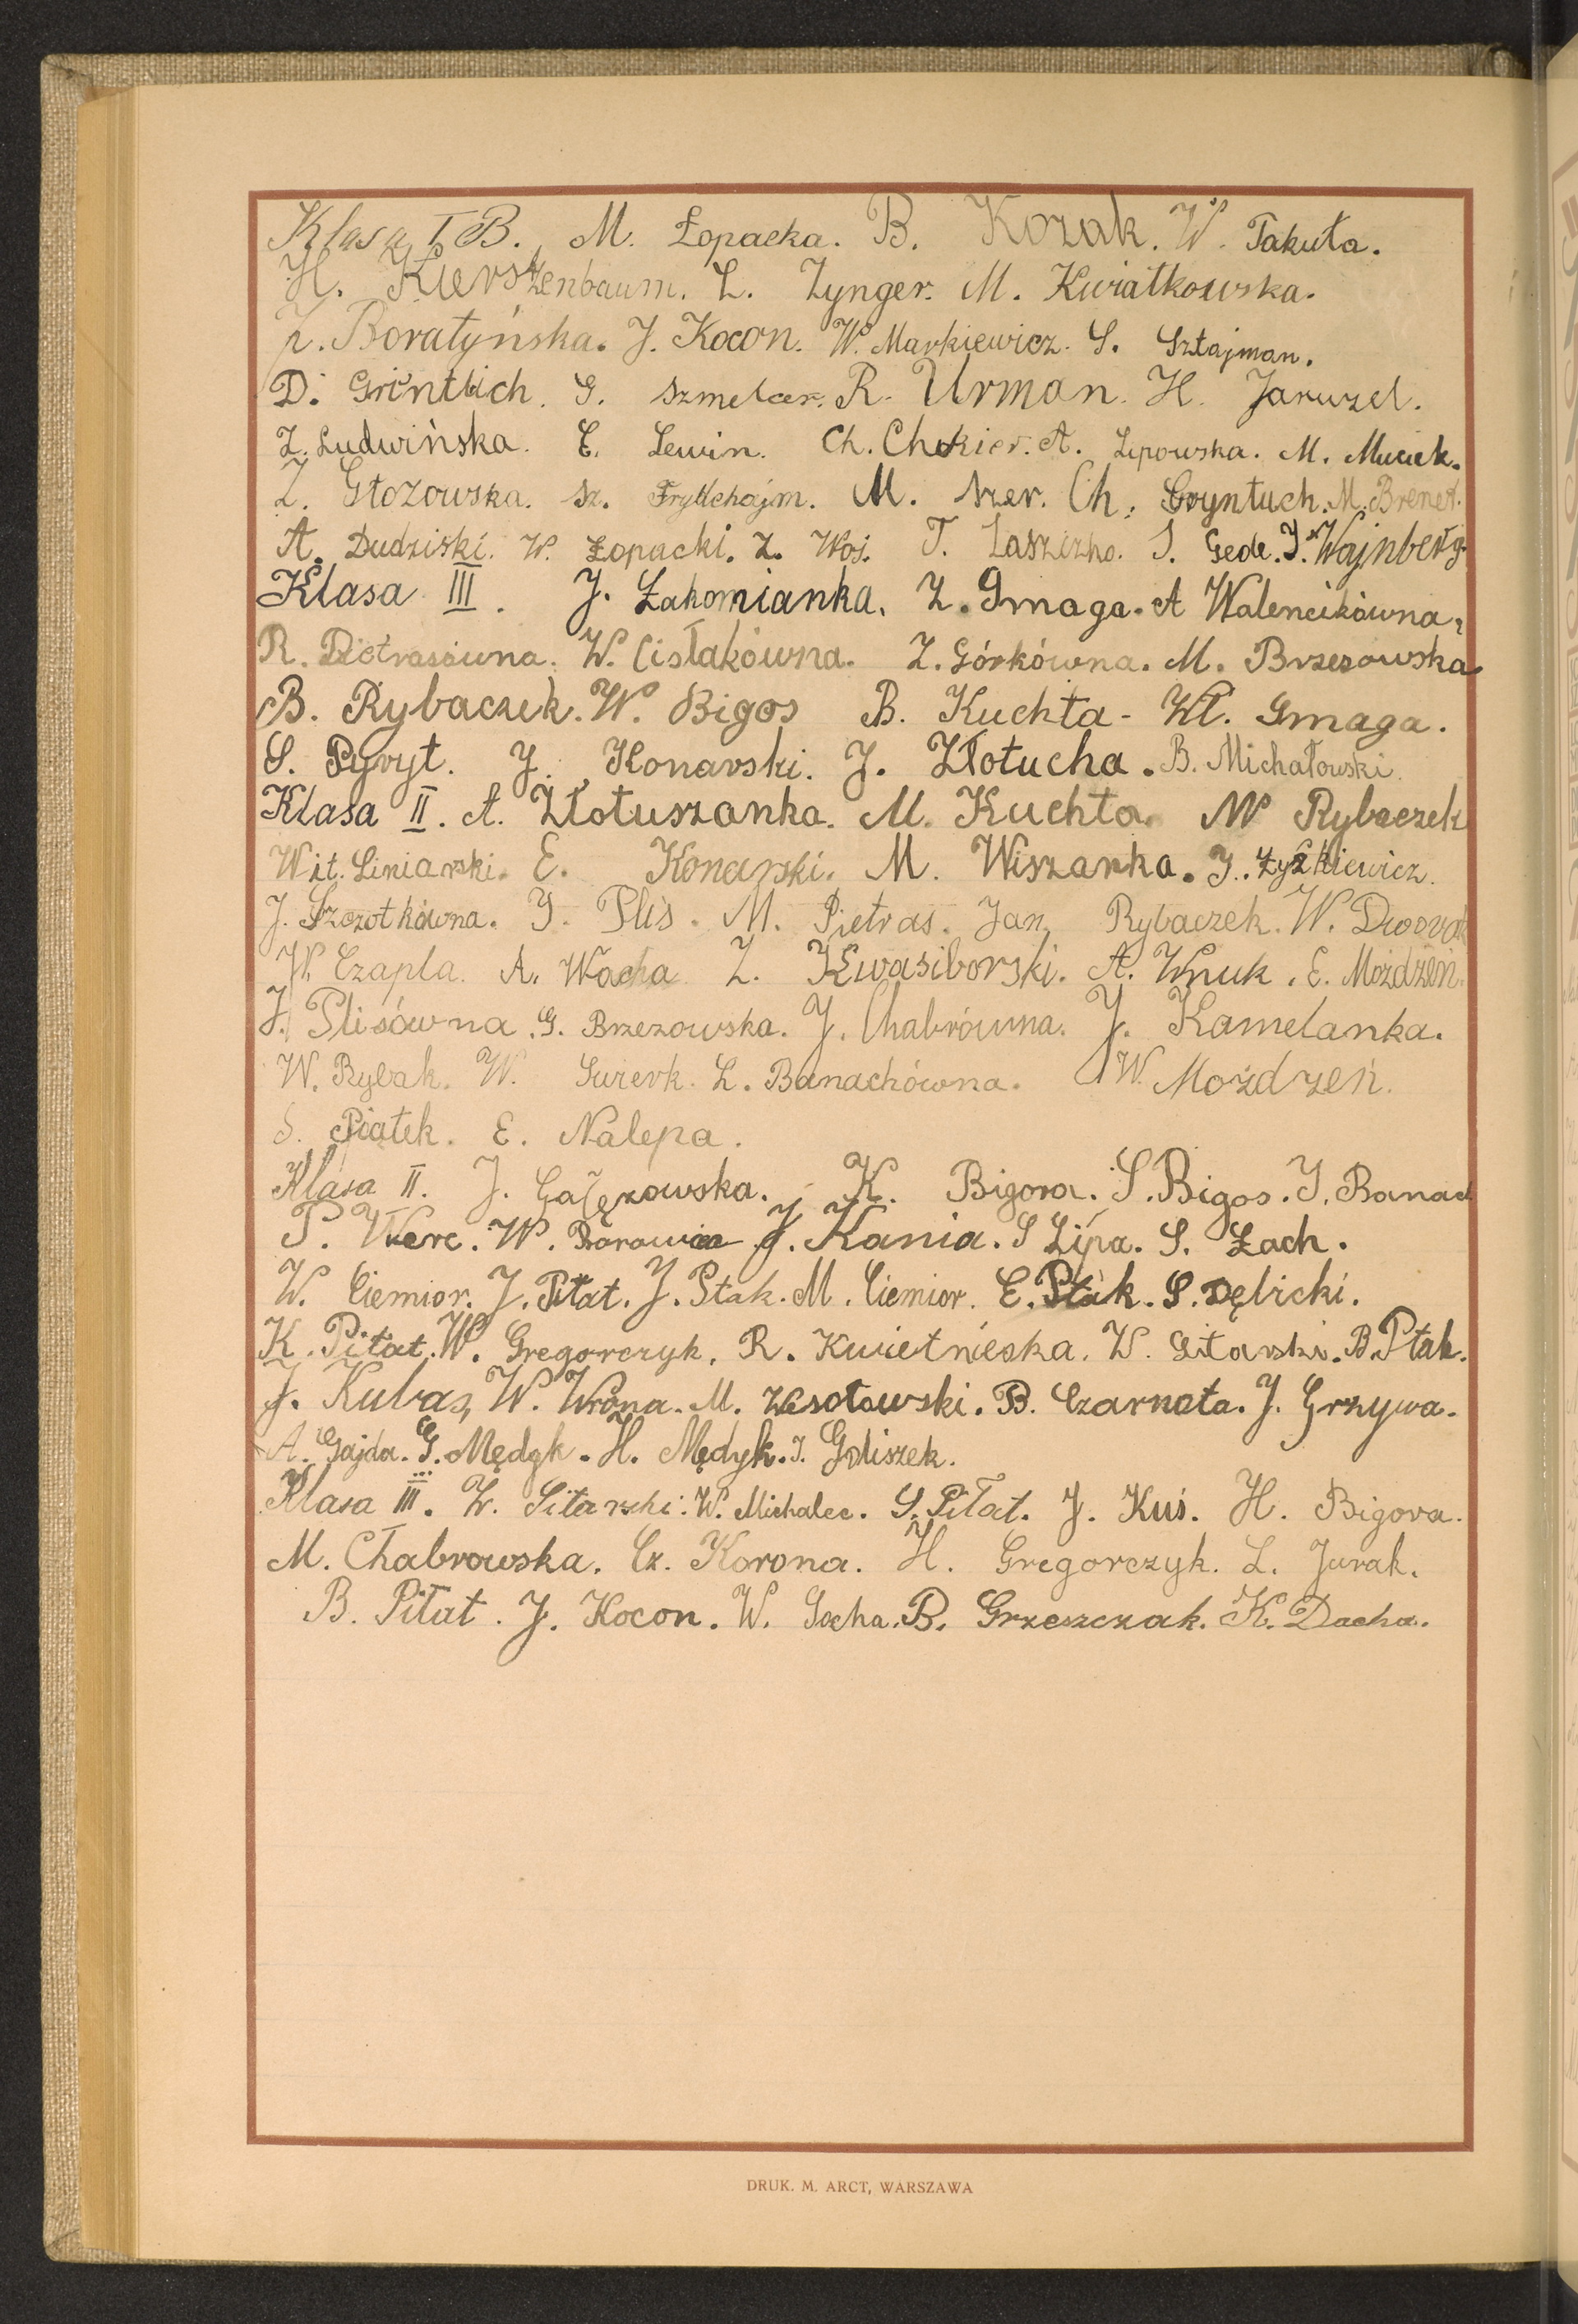 Klasa I B. M. Łopacka. B. Kozak. W. Takuta.
H. Kierszenbaum. L. Zynger. M. Kwiatkowska.
Boratyńska. J. Kocon. W. Markiewicz. S. Sztajman.
D. Grintlich. G. Szmelcer. R. Urman. H. Jaruzel.
Z. Ludwińska. E. Lewin. Ch. Chekier. A. Lipowska. M. Muciek.
Z. Głozowska. Sz. M. Szer. Ch. Gryntuch. M. Brenet.
A. Dudziski. W. Łopacki. Z. Woj. T. S. Gede. J. Wajnberg.
Klasa III. J. Łakomianka. Z. Gmaga. A Walencikówna,
R. Pietrasówna. W. Cisłakówna. Z. Górkówna. M. Brzezowska
B. Rybaczek. W. Bigos B. Kuchta - Wł. Gmaga.
S. Pyryt. J. Konarski. J. Złotucha. B. Michałowski.
Klasa II. A. Złotuszanka. M. Kuchta. W Rybaczek
Wit. Siniarski. E. Konarski. M. Wiszanka. J. Łyżkiewicz.
J. Szczotkówna. J. Plis. M. Pietras. Jan. Rybaczek. W. Dworak
W. Czapla. A. Wacha Z. Kwasiborski. A. Wnuk. E. Możdżeń.
J. Plisówna. G. Brzezowska. J. Chabrówna. J. Kamelanka.
W. Rybak. W. L. Banachówna. W. Możdżeń.
S. Piątek. E. Nalepa.
Klasa II. J. Gałęzowska. K. Bigora. S. Bigos. J. Banach
P. Werc. W. J. Kania. S Lipa. S. Łach.
W. Ciemior. J. Piłat. J. Ptak. M. Ciemior. E. Ptak. S. Dębicki.
K. Piłat. W. Gregorczyk. R. Kwietnieska. W. Sitarski. B. Ptak.
J. Kubas, W. Wrona. M. Wesołowski. B. Czarnota. J. Grzywa.
A. Gajda. G. Mędyk. H. Mędyk. J. Goliszek.
Klasa III. W. Sitarski. W. Michalec. S. Piłat. J. Kuś. H. Bigora.
M. Chabrowska. Cz. Korona. H. Gregorczyk. L. Jurak.
B. Piłat. J. Kocon. W. Socha. B. Grzeszczak. K. Dacha.
DRUK. M. ARCT, WARSZAWA